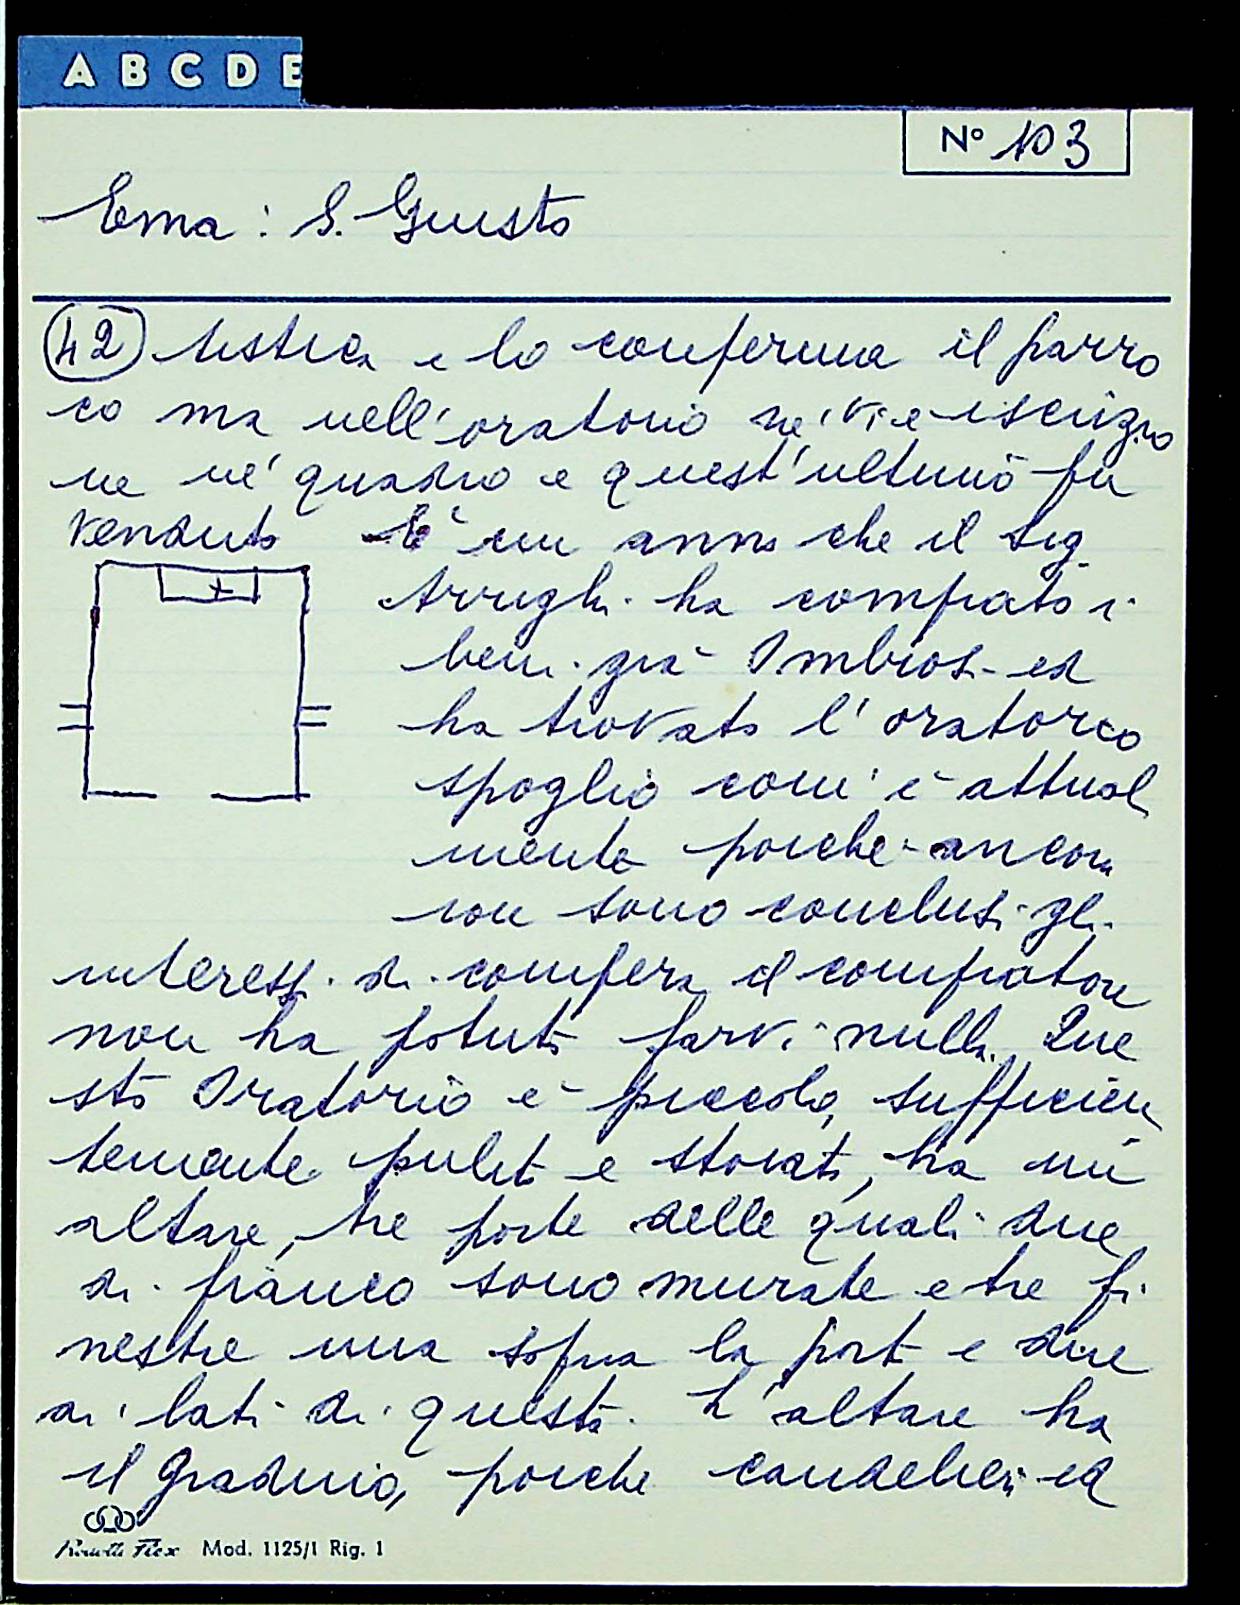 A B C D E
Nº 103
Ema : S. Giusto
42 tistica e lo conferma il parro
co ma nell'oratorio ne' vi e iscrizio
ne ne' quadro e quest'ultimo fu
venduto E' un anno che il Sig
Arrighi ha comprato i
beni già Ombrosi ed
ha trovato l'oratorio
spoglio com'è attual
mente poiche ancora
non sono conclusi gli
interessi di compera il compratore
non ha potuto farvi nulla. Que
sto Oratorio è piccolo, sufficien
temente pulito e stoiato, ha un
altare, tre porte delle quali due
di fianco sono murate e tre fi
nestre una sopra la porta e due
ai lati di questa. L'altare ha
il gradino, poiche candelieri ed
Flex Mod. 1125/1 Rig. 1